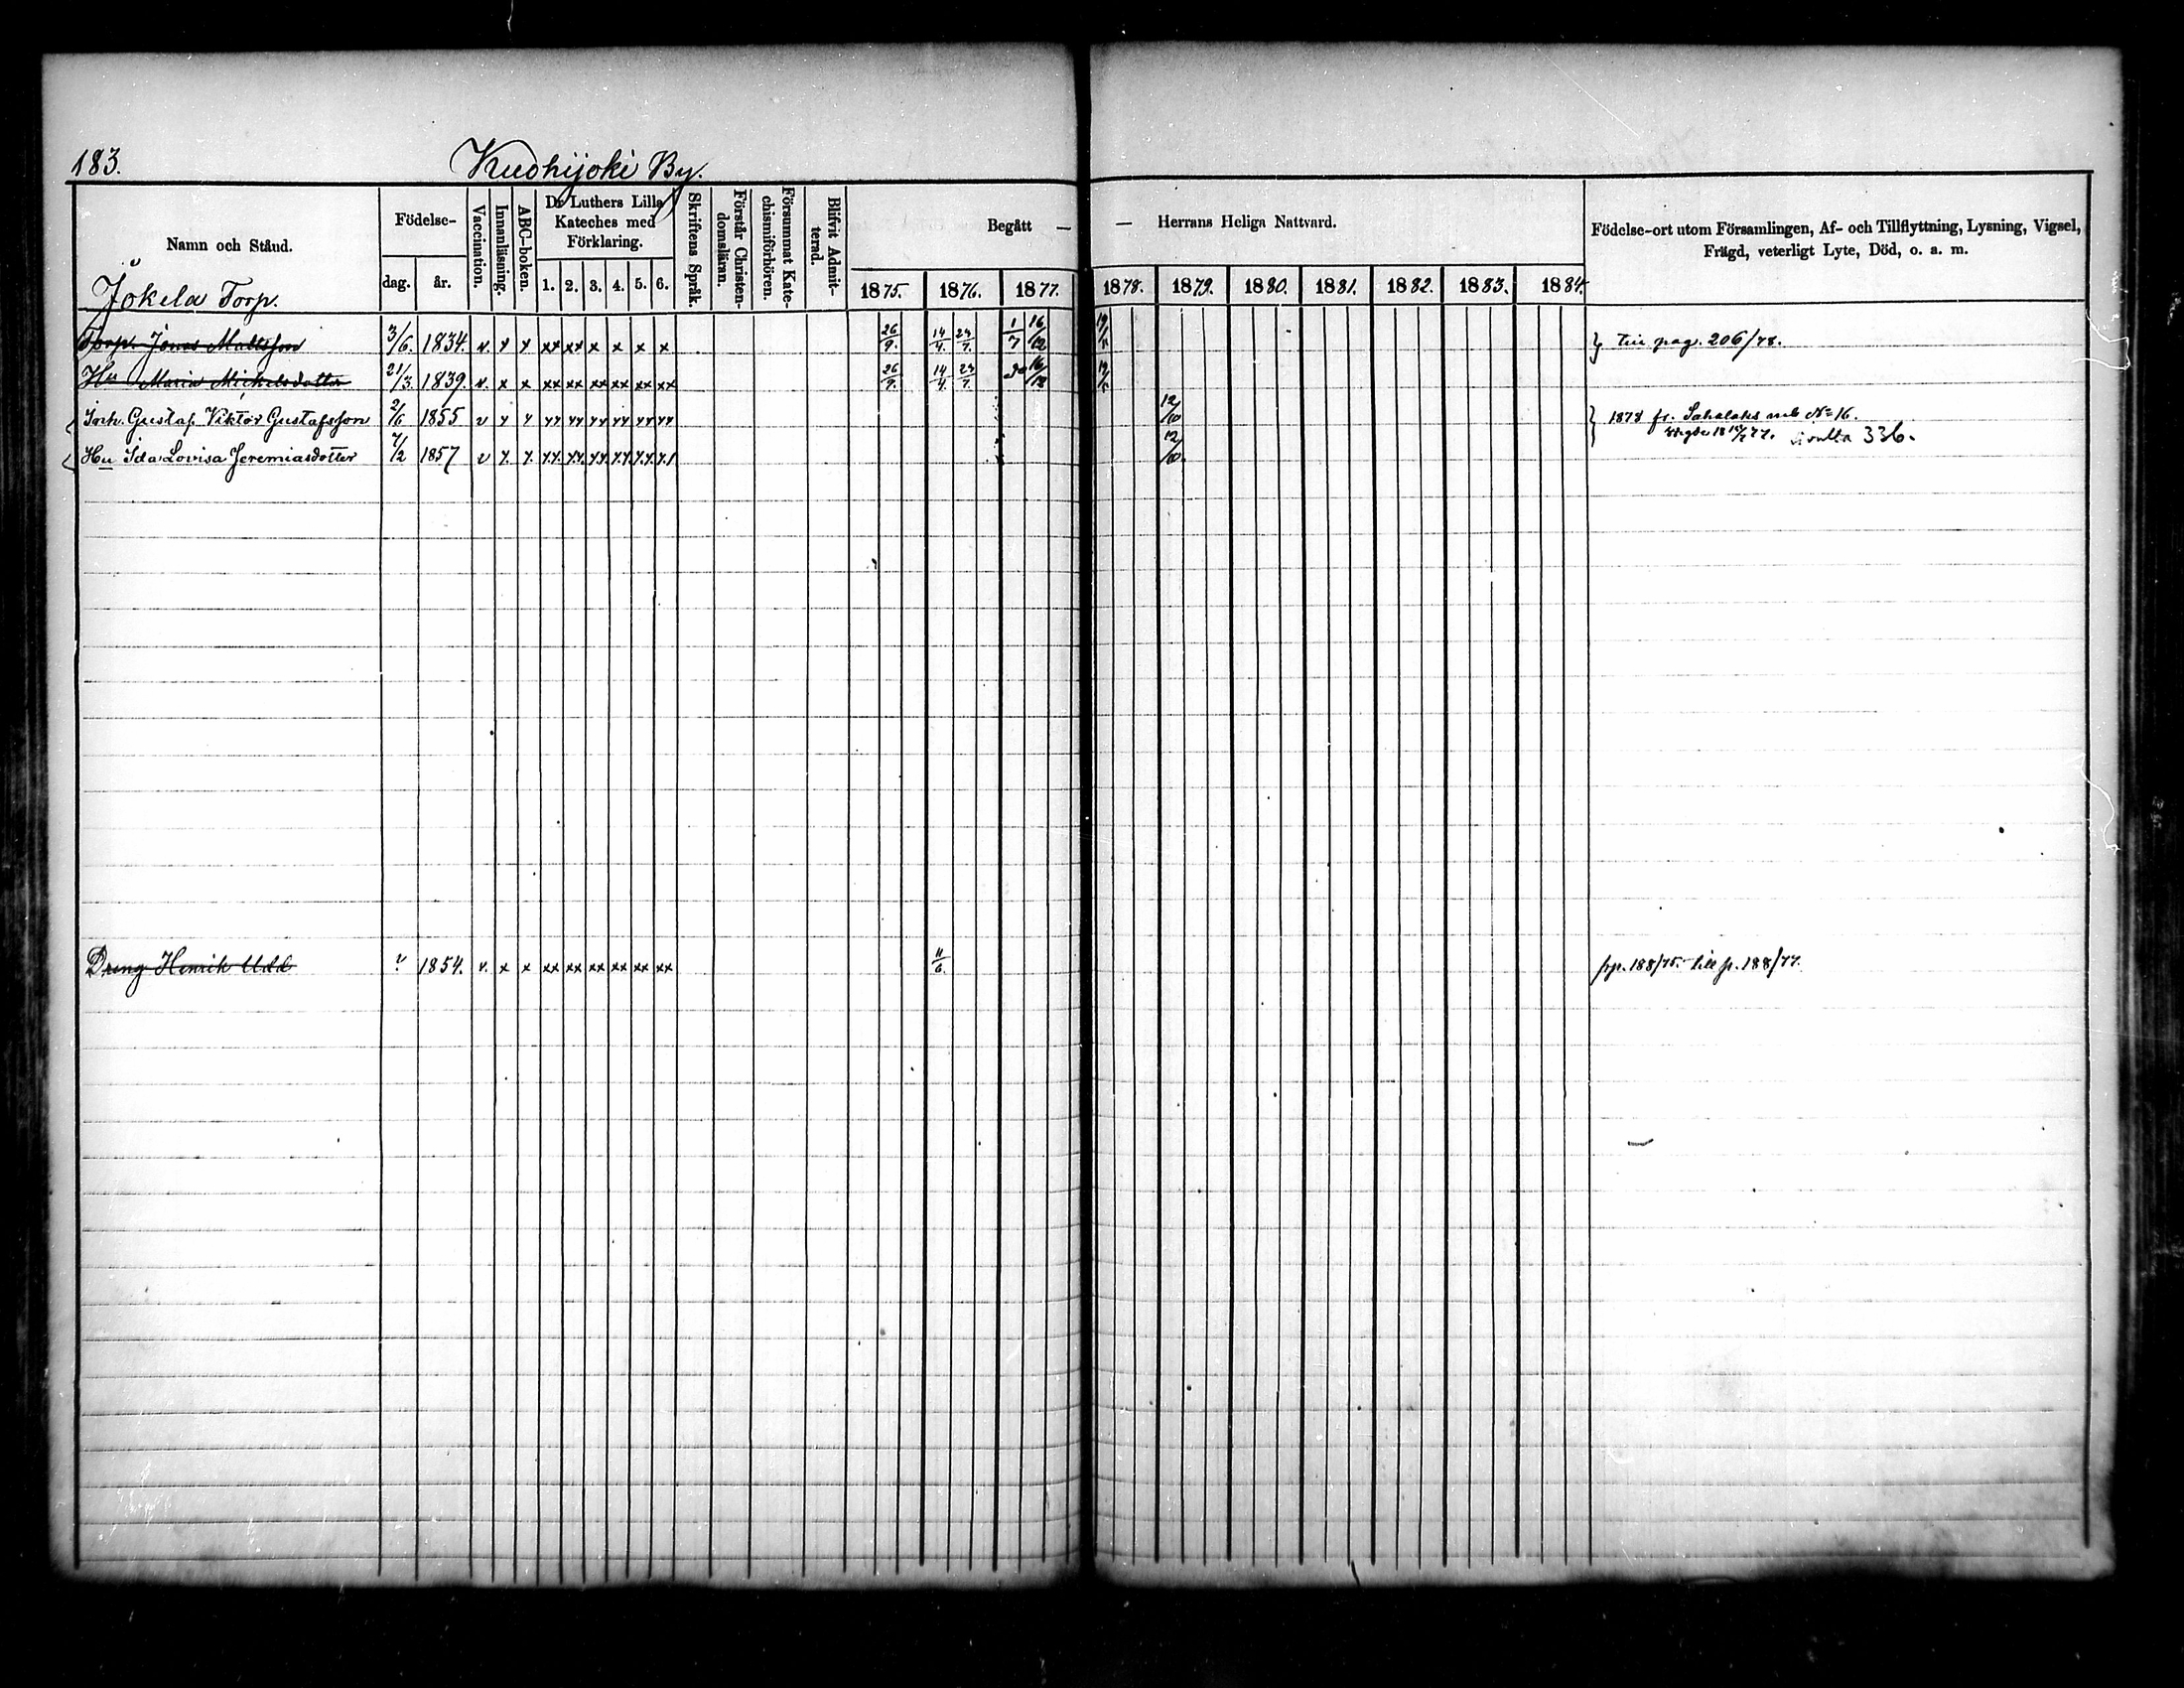 183.
Kuohijoki By.
Namn och Stånd.
Födelse-
dag.
år.
Vaccination.
Innanläsning.
ABC-boken.
Dr Luthers Lilla
Kateches med
Förklaring.
1. 2. 3. 4. 5. 6.
Skriftens Språk.
Förstår Christen-
domsläran.
Försummat Kate-
chismiförhören.
Blifvit Admit-
terad.
Begått —
— Herrans Heliga Nattvard.
1875. 1876. 1877. 1878. 1879. 1880. 1881. 1882. 1883. 1884.
Födelse-ort utom Församlingen, Af- och Tillflyttning, Lysning, Vigsel,
Frägd, veterligt Lyte, Död, o. a. m.
Jokela Torp.
Torp. Jonas Mattsson 3/6. 1834. v. x x xx xx x x x x 26/9. 14/4. 29/7. 1/7 16/12 } till pag. 206/78.
Hu Maria Michelsdotter 21/3. 1839. v. x x xx xx xx xx xx xx 26/9. 14/4. 29/7. 16/12
Inh. Gustaf Viktor Gustafsson 2/6 1855 v x x xx xx xx xx xx xx 12/10 } 1878 fr. Sahalaks mb No 16.
336.
Hu Ida Lovisa Jeremiasdotter 7/2 1857 v x. x. xx xx. xx. xx xx 12/10.
Dreng Henrik Udd ? 1854. v. x x xx xx xx xx xx xx 11/6. frp. 188/75. till p. 188/77.